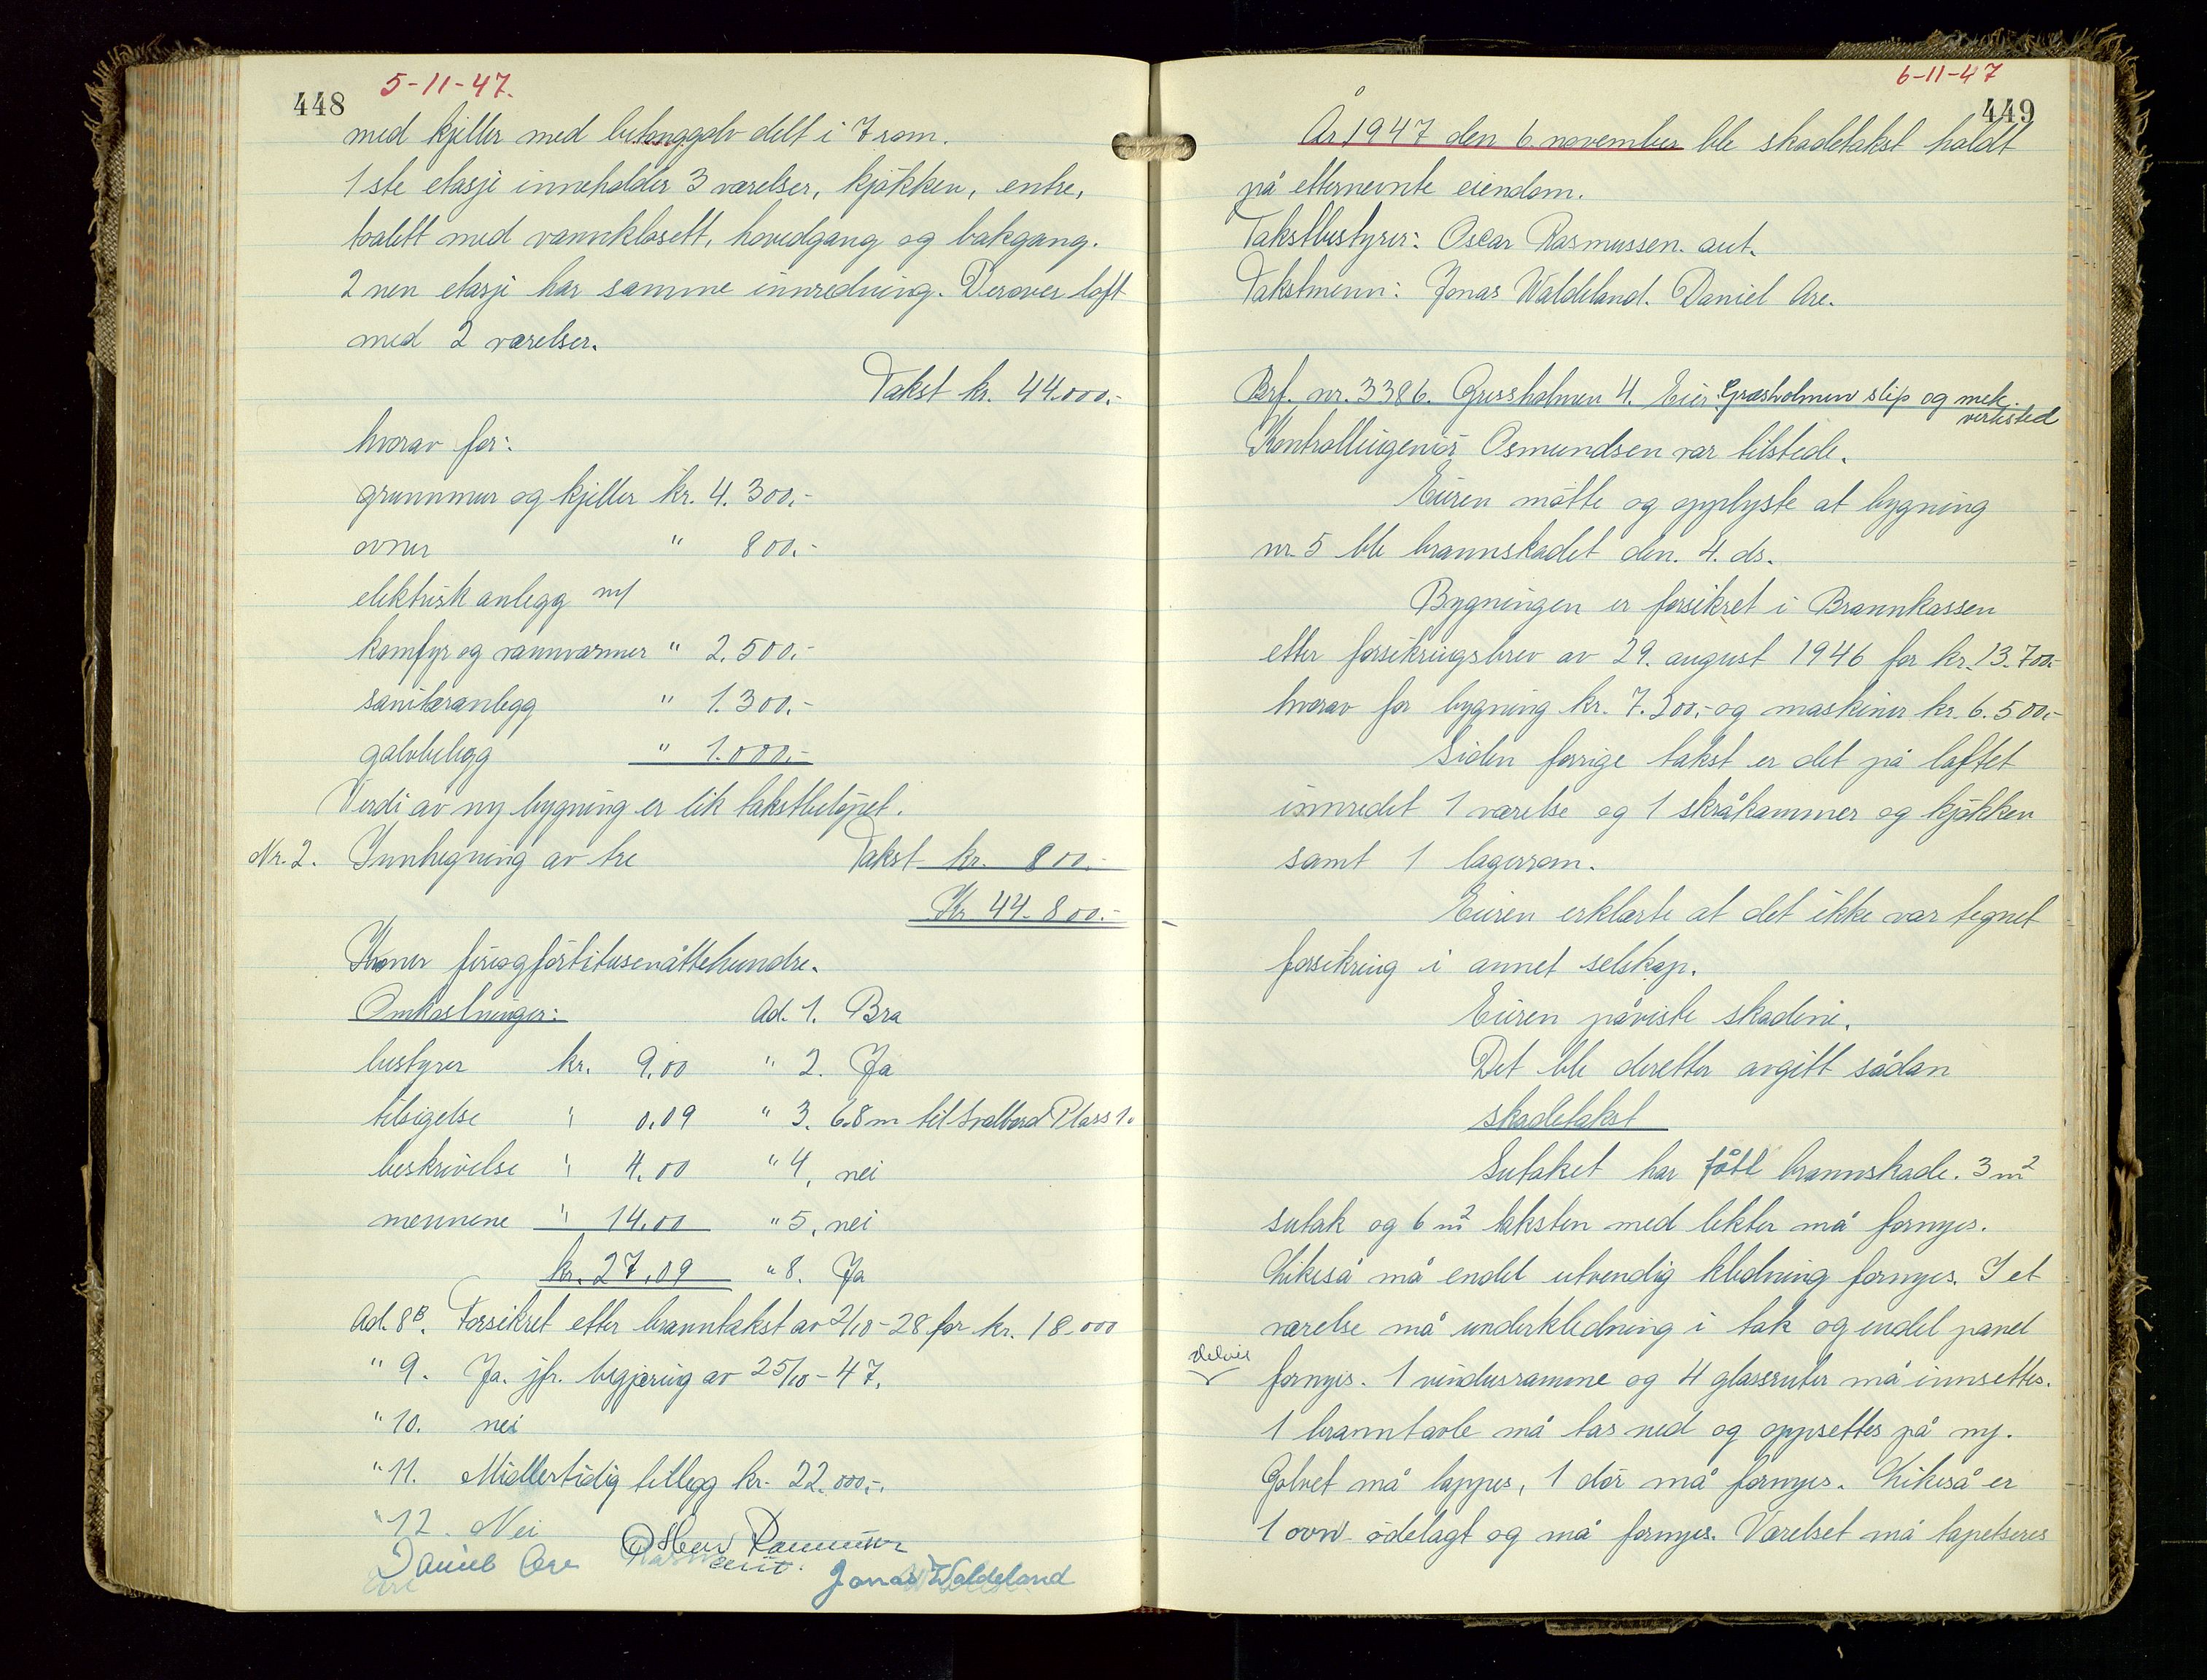 448
5-11-47.
med kjeller med betonggolv delt i 7 rom.
1 ste etasje inneholder 3 værelser, kjøkken, entre,
toalett med vannklosett, hovedgang og bakgang.
2 nen etasje har samme innredning. Derover loft
med 2 værelser.
Takst kr. 44.000.-
hvorav for:
grunnmur og kjeller kr. 4.300.-
ovner " 800.-
elektrisk anlegg m/
komfyr og vannvarmer " 2.500.-
sanitæranlegg " 1.300.-
golvbelegg " 1.000.-
Verdi av ny bygning er lik takstbeløpet.
Nr. 2. Innhegning av tre Takst kr. 800.-
Kr 44.800.-
Kroner firiogførtitusenåttehundre.
Omkostninger: Ad. 1. Bra
bestyrer kr. 9.00 " 2. Ja
tilsigelse " 0.09 " 3. 68 m til Svalbard Plass 1.
beskrivelse " 4.00 " 4. nei
mennene " 14.00 " 5. nei
kr. 27.09 " 8. Ja
Ad. 8B. Forsikret etter branntakst av 2/10-28 for kr. 18.000
" 9. Ja. jfr. begjæring av 25/10-47.
" 10. nei
" 11. Midlertidig tillegg kr. 22.000,-.
" 12. Nei
Oscar Rasmussen
Daniel Are aut. Jonas Waldeland
6-11-47
449
År 1947 den 6. november ble skadetakst holdt
på etternevnte eiendom.
Takstbestyrer: Oscar Rasmussen. aut.
Takstmenn: Jonas Waldeland. Daniel Are.
Brf. nr. 3386. Gressholmen 4. Eier Græsholmen slip og mek.
verksted
Kontrollingeniør Osmundsen var tilstede.
Eieren møtte og opplyste at bygning
nr. 5 ble brannskadet den. 4. ds.
Bygningen er forsikret i Brannkassen
etter forsikringsbrev av 29. august 1946 for kr. 13.700.-
hvorav for bygning kr. 7.200,- og maskiner kr. 6.500.-
Siden forrige takst er det på loftet
innredet 1 værelse og 1 skråkammer og kjøkken
samt 1 lagerrom.
Eieren erklærte at det ikke var tegnet
forsikring i annet selskap.
Eieren påviste skadene.
Det ble deretter avgitt sådan
skadetakst
Sutaket har fått brannskade. 3 m2
sutak og 6 m2 taksten med lekter må fornyes.
Likeså må endel utvendig kledning fornyes. I et
værelse må underkledning i tak og endel panel
delvis
fornyes. 1 vindusramme og 4 glassruter må innsettes.
1 branntavle må tas ned og oppsettes på ny.
Golvet må lappes, 1 dør må fornyes. Likeså er
1 ovn ødelagt og må fornyes. Værelset må tapetseres